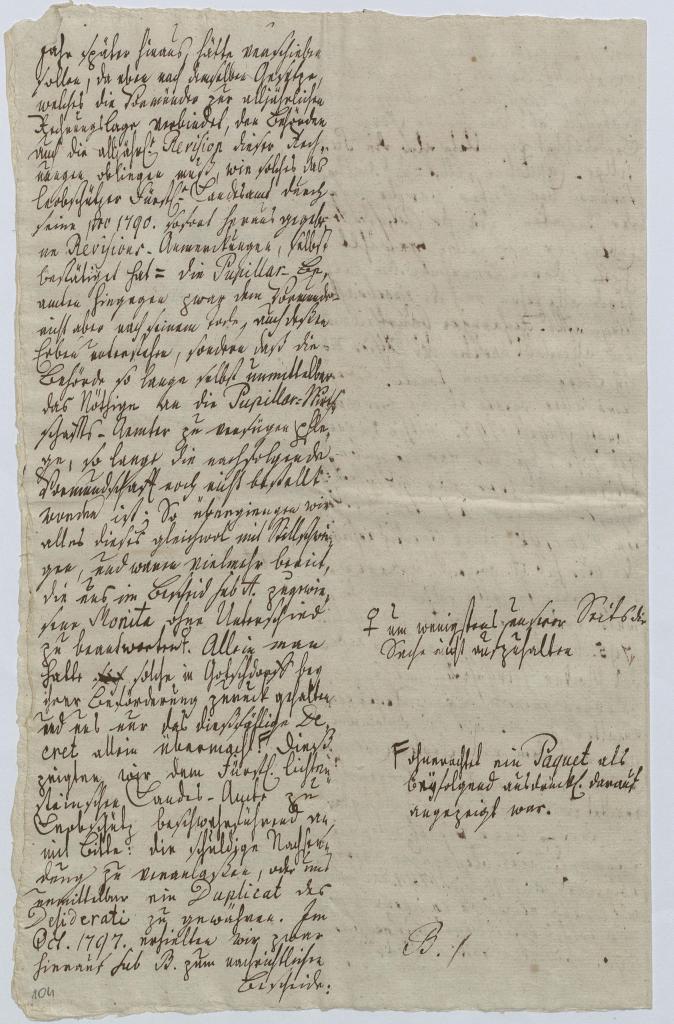 Jahr später hinaus hätte verschieben
sollen, da eben nach demselben Gesetze,
welches die Vormünder zur alljährlichen
Rechnungslage verbindet, den Behörden
auch die alljährl. Revision dieser Rech-
nungen obliegen muß, wie solches das
Leobschützer Fürstl. Landesamt durch
seine pro 1790. sofort herausgegeb-
ne Revisions-Anmerkungen, selbst
bestätiget hat = die Pupillar-Be-
amten hingegen zwar dem Vormunde
nicht aber nach seinem Tode, auch deßen
Erben unterstehen, sondern daß die
Behörde so lange selbst unmittelbar
das Nöthige an die Pupillar-Wirth-
schafts-Aemter zu verfügen pfle-
ge, so lange die nachfolgende
Vormundschaft noch nicht bestellt
worden ist: So übergiengen wir
alles dieses gleichwol mit Stillschwei-
gen, und waren vielmehr bereit,
die uns im Bescheid sub A. zugewie-
sene Monita ohne Unterschied
zu beantworten ♀. Allein man
hatte solche in Gotschdorff bey
der Beförderung zurück gehalten
und uns nur das dießfällige De-
cret allein übermacht F. Dieß
zeigten wir dem Fürstl. Lichten-
steinschen Landes-Amte zu
Leobschütz beschwerführend an,
mit Bitte: die schuldige Nachsen-
dung zu veranlaßen, oder uns
unmittelbar ein Duplicat des
Desiderati zu gewähren. Im
Oct. 1797. erhielten wir zwar
hierauf sub B. zum nachrichtlichen
Bescheide:
♀ um wenigstens unserer Seits die
Sache nicht aufzuhalten
F ohnerachtet ein Paquet als
beyfolgend ausdrückl. darauf
angezeigt war.
B. /.
104